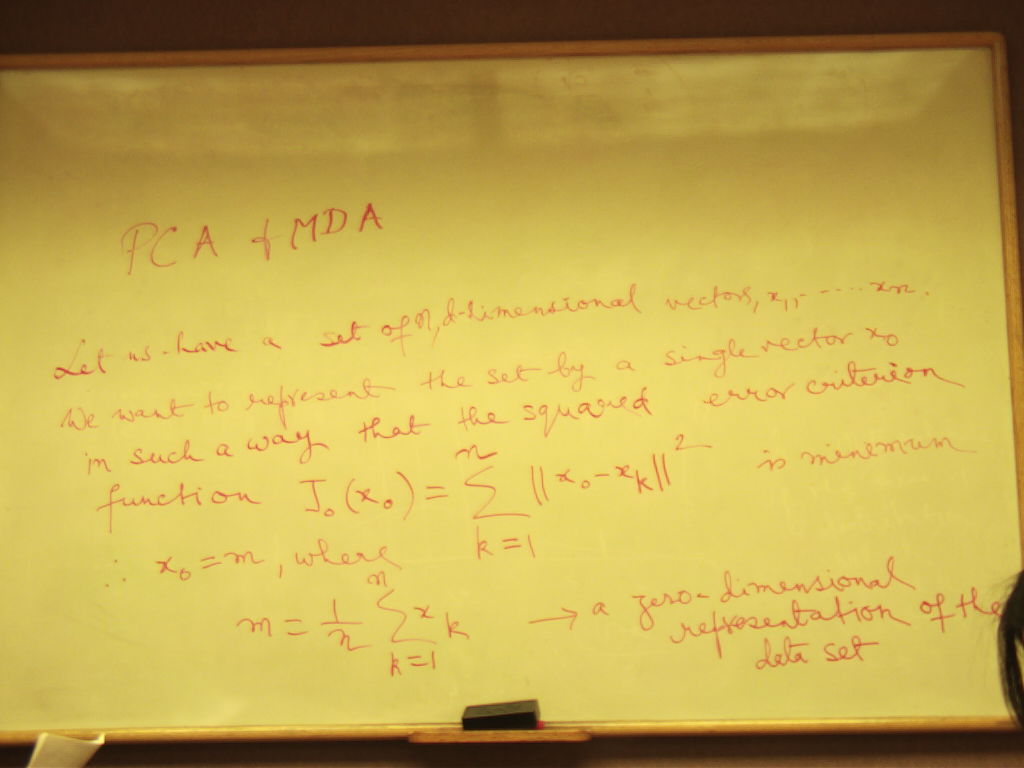 PCA & MDA
Let us have a set of n, d-dimensional vectors, x₁, ..... xn.
We want to represent the set by a single vector x₀
in such a way that the squared error criterion
function J₀(x₀) = Σ_{k=1}^{n} ||x₀ - x_k||² is minemum
∴ x₀ = m, where
m = 1/n Σ_{k=1}^{n} x_k → a zero-dimensional
representation of the
data set